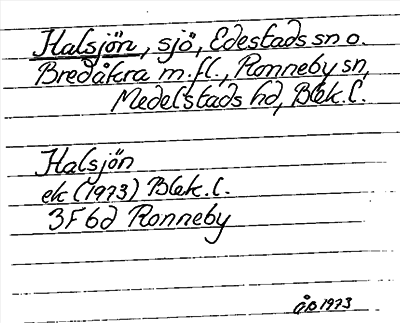 Halsjön, sjö, Edestads sn o.
Bredåkra m.fl., Ronneby sn,
Medelstads hd, Blek.l.
Halsjön
ek (1973) Blek.l.
3F6d Ronneby
ÅB 1973